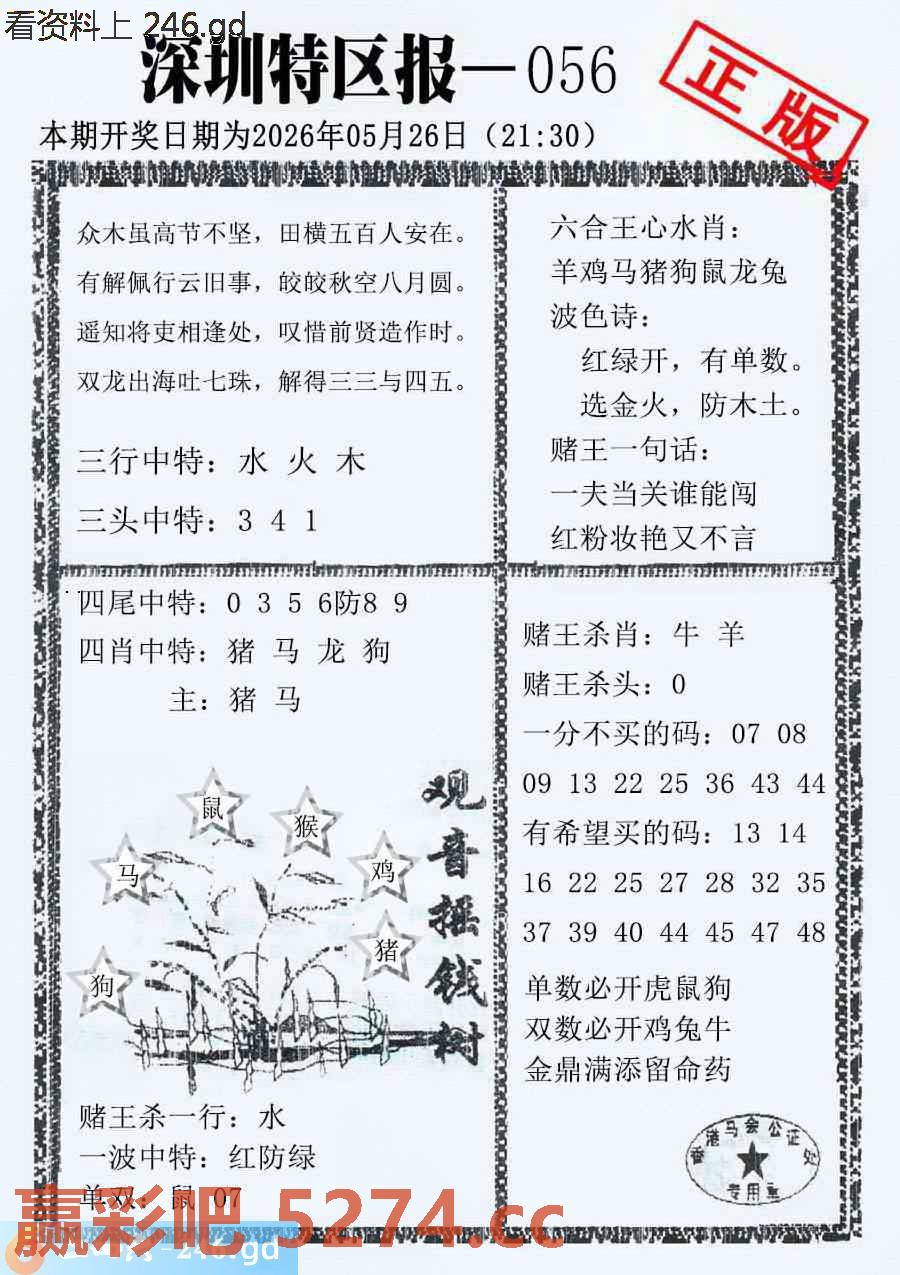 看资料上 246.gd
深圳特区报—056
正版
本期开奖日期为2026年05月26日（21:30）
众木虽高节不坚，田横五百人安在。
有解佩行云旧事，皎皎秋空八月圆。
遥知将吏相逢处，叹惜前贤造作时。
双龙出海吐七珠，解得三三与四五。
三行中特：水 火 木
三头中特：3 4 1
六合王心水肖：
羊鸡马猪狗鼠龙兔
波色诗：
红绿开，有单数。
选金火，防木土。
赌王一句话：
一夫当关谁能闯
红粉妆艳又不言
四尾中特：0 3 5 6防8 9
四肖中特：猪 马 龙 狗
主：猪 马
观音摇钱树
鼠
猴
马
鸡
猪
狗
赌王杀一行：水
一波中特：红防绿
单双：鼠 07
赌王杀肖：牛 羊
赌王杀头：0
一分不买的码：07 08
09 13 22 25 36 43 44
有希望买的码：13 14
16 22 25 27 28 32 35
37 39 40 44 45 47 48
单数必开虎鼠狗
双数必开鸡兔牛
金鼎满添留命药
香港马会公证处
专用章
赢彩吧 5274.cc
246.gd